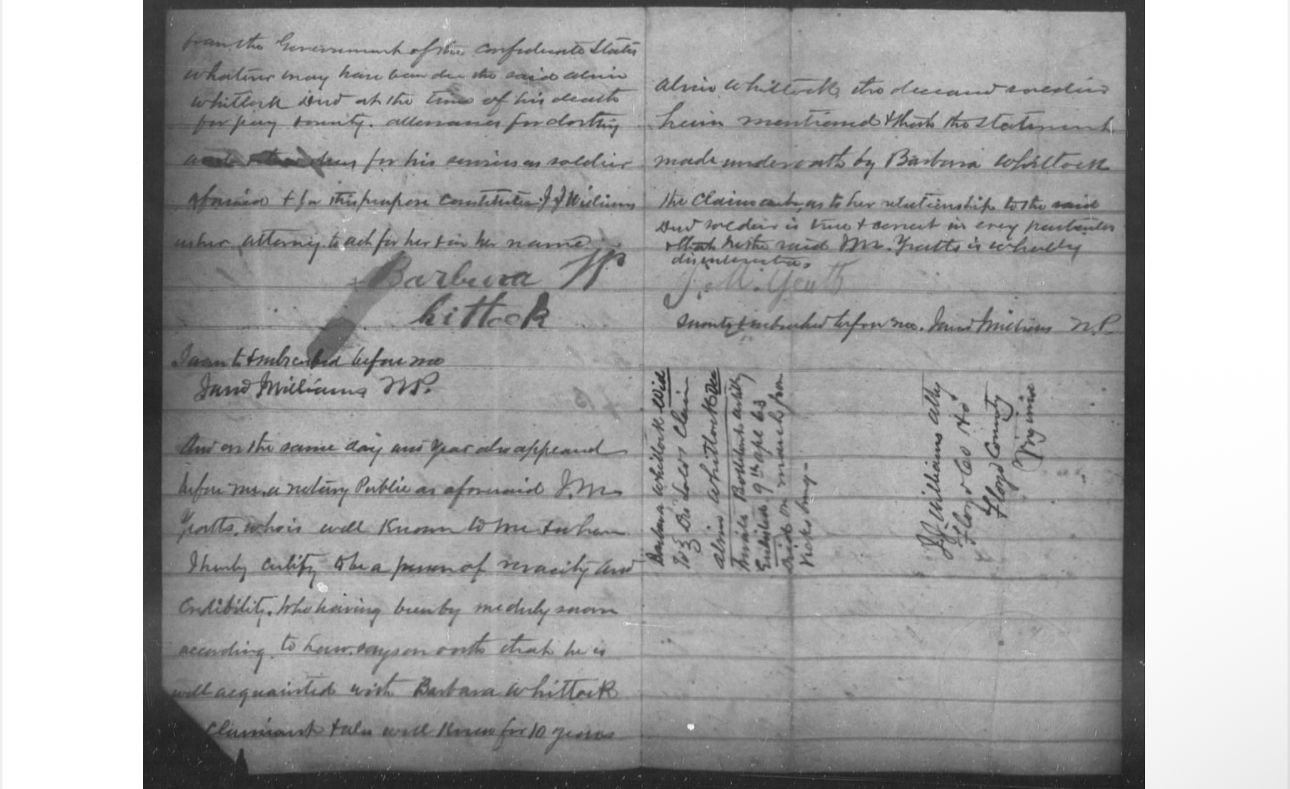 from the Government of the confederate States
whatever may have been due the said Alvin
Whitlock Decd at the time of his death
for pay bounty. allowances for clothing
for his services as soldier
aforesaid & for this purpose constitutes J J Williams
as her attorney to act for her & in her name
Barbara W
hitlock
Sworn to & subscribed before me
Jared Williams N.P.
And on the same day and year also appeared
before me, a notary Public as aforesaid J. M.
Yeatts, who is well known to me & whom
I hereby certify to be a person of veracity and
Credibility. Who having been by me duly sworn
according to Law. says on oath that he is
well acquainted with Barbara Whitlock
Claimant & also well knew for 10 years
Alvin Whitlock, the deceased soldier
herein mentioned & that the statement
made under oath by Barbara Whitlock
the Claimant, as to her relationship to the said
Decd soldier is true & correct in every particular
& that he the said J.M. Yeatts is wholly
disinterested,
J. M. Yeatts
Sworn to & subscribed before me. Jared Williams N.P
Barbara Whitlock Wid
Claim
Alvin Whitlock Dec
Private Artilly
Enlisted 9th apl 63
Died on march from
Vicksburg-
J J Williams atty
Floyd Co Ho
Floyd County
Virginia